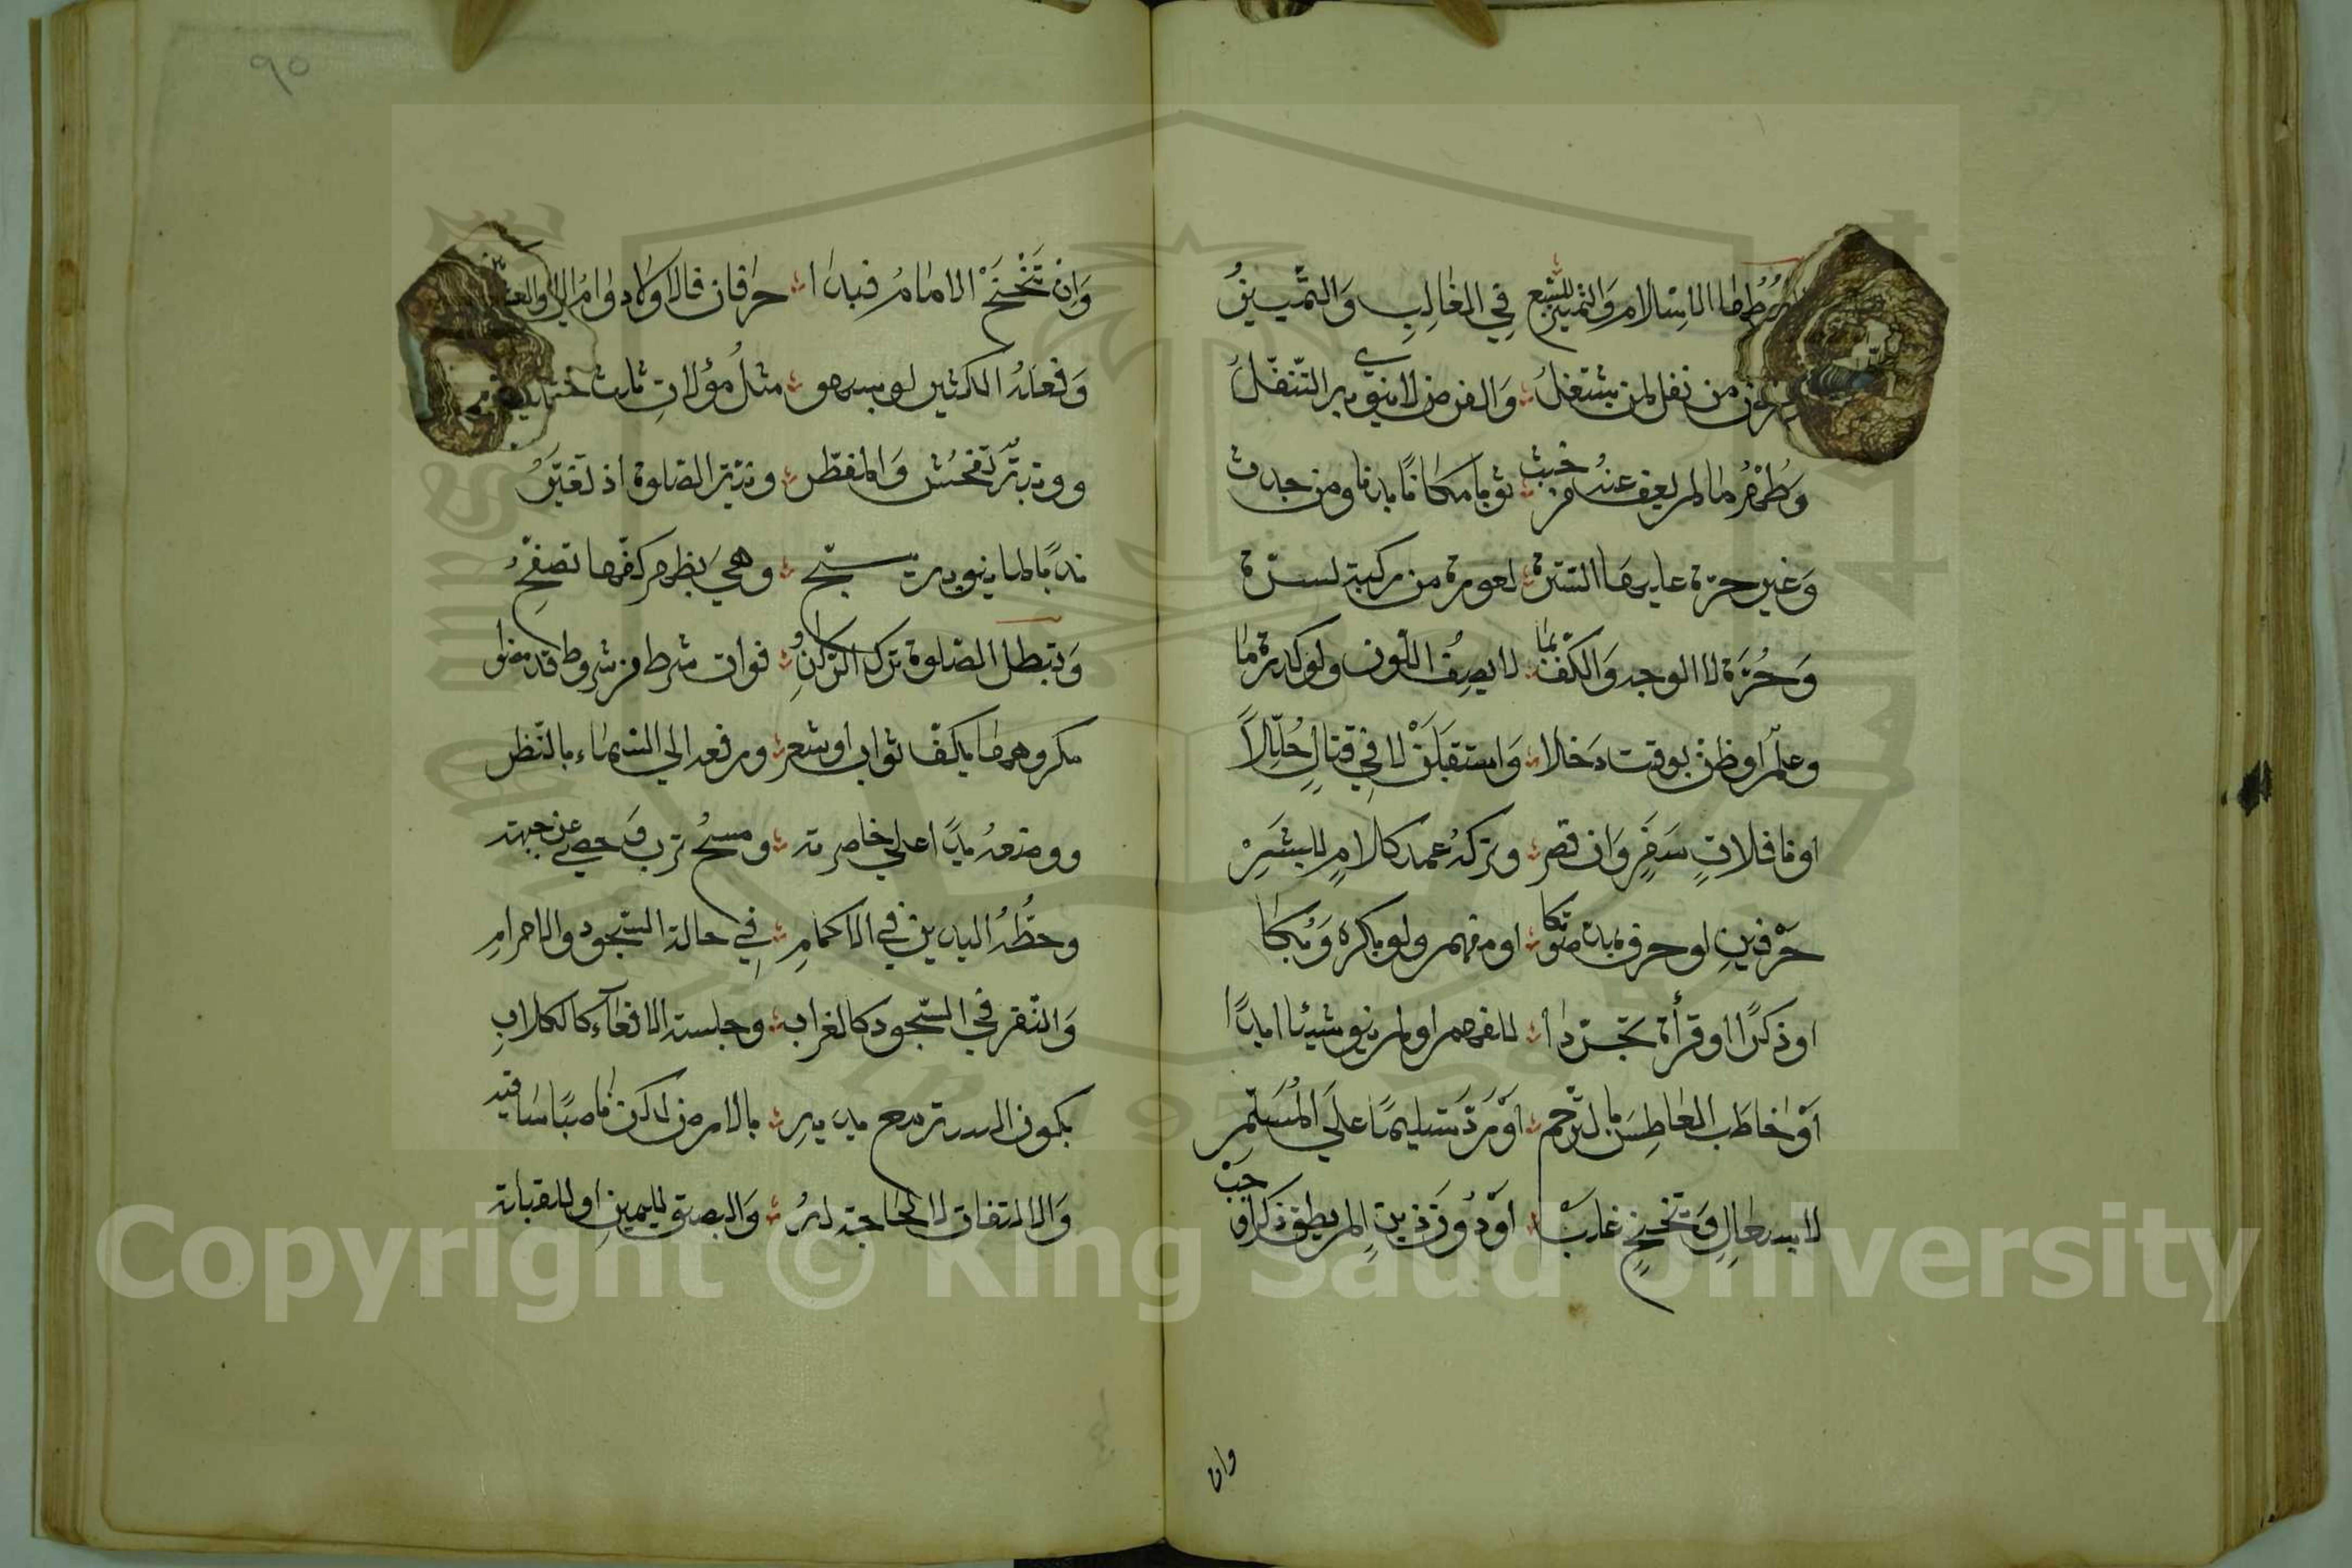 شروطها الاسلام والتمييز للسبع في الغالب والتمييز
من نفل لمن يشتغل والفرض لا ينوي به التنفل
وطهر ما لم يعف عنه من خبث ثوبا مكانا بدنا ومن حدث
وغير حرة عليها السترة لعورة من ركبة لسرة
وحرة لا الوجه والكف بما لا يصف اللون ولو كدرة ما
وعلم او ظن بوقت دخلا واستقبلن لا في قتال حللا
او نافلات سفر وان قصر وتركه عمد كلام للبشر
حرفين او حرف بمد صوتكا او مفهم ولو بكره وبكا
او ذكرا او قرأة تجردا للفهم او لم ينو شيئا ابدا
او خاطب العاطس بالترحم او رد تسليما على المسلم
لا بسعال وتنحنح غلب او دون ذين لم يطق ذكرا وجب
وان
٩٥
وان تنحنح الامام فبدا حرفان فالاولى دوام الاقتدا
وفعله الكثير لو بسهو مثل موالات ثلاث خطو
ووثبة تفحش والمفطر ونية الصلوة اذ تغير
ندبا لما ينوبه يسبح وهي بظهر كفها تصفح
وتبطل الصلوة ترك الركن فوات شرط من شروط قد مضوا
مكروهها بكف ثوب او شعر ورفعه الى السماء بالنظر
ووضعه يدا على خاصرته ومسح ترب وحصى عن جبهته
وحطه اليدين في الاكمام في حالة السجود والاحرام
والنقر في السجود كالغراب وجلسة الاقعاء كالكلاب
يكون اليته مع يديه بالارض لكن ناصبا ساقيه
والالتفات لا لحاجة له والبصق لليمين او للقبلة
Copyright © King Saud University